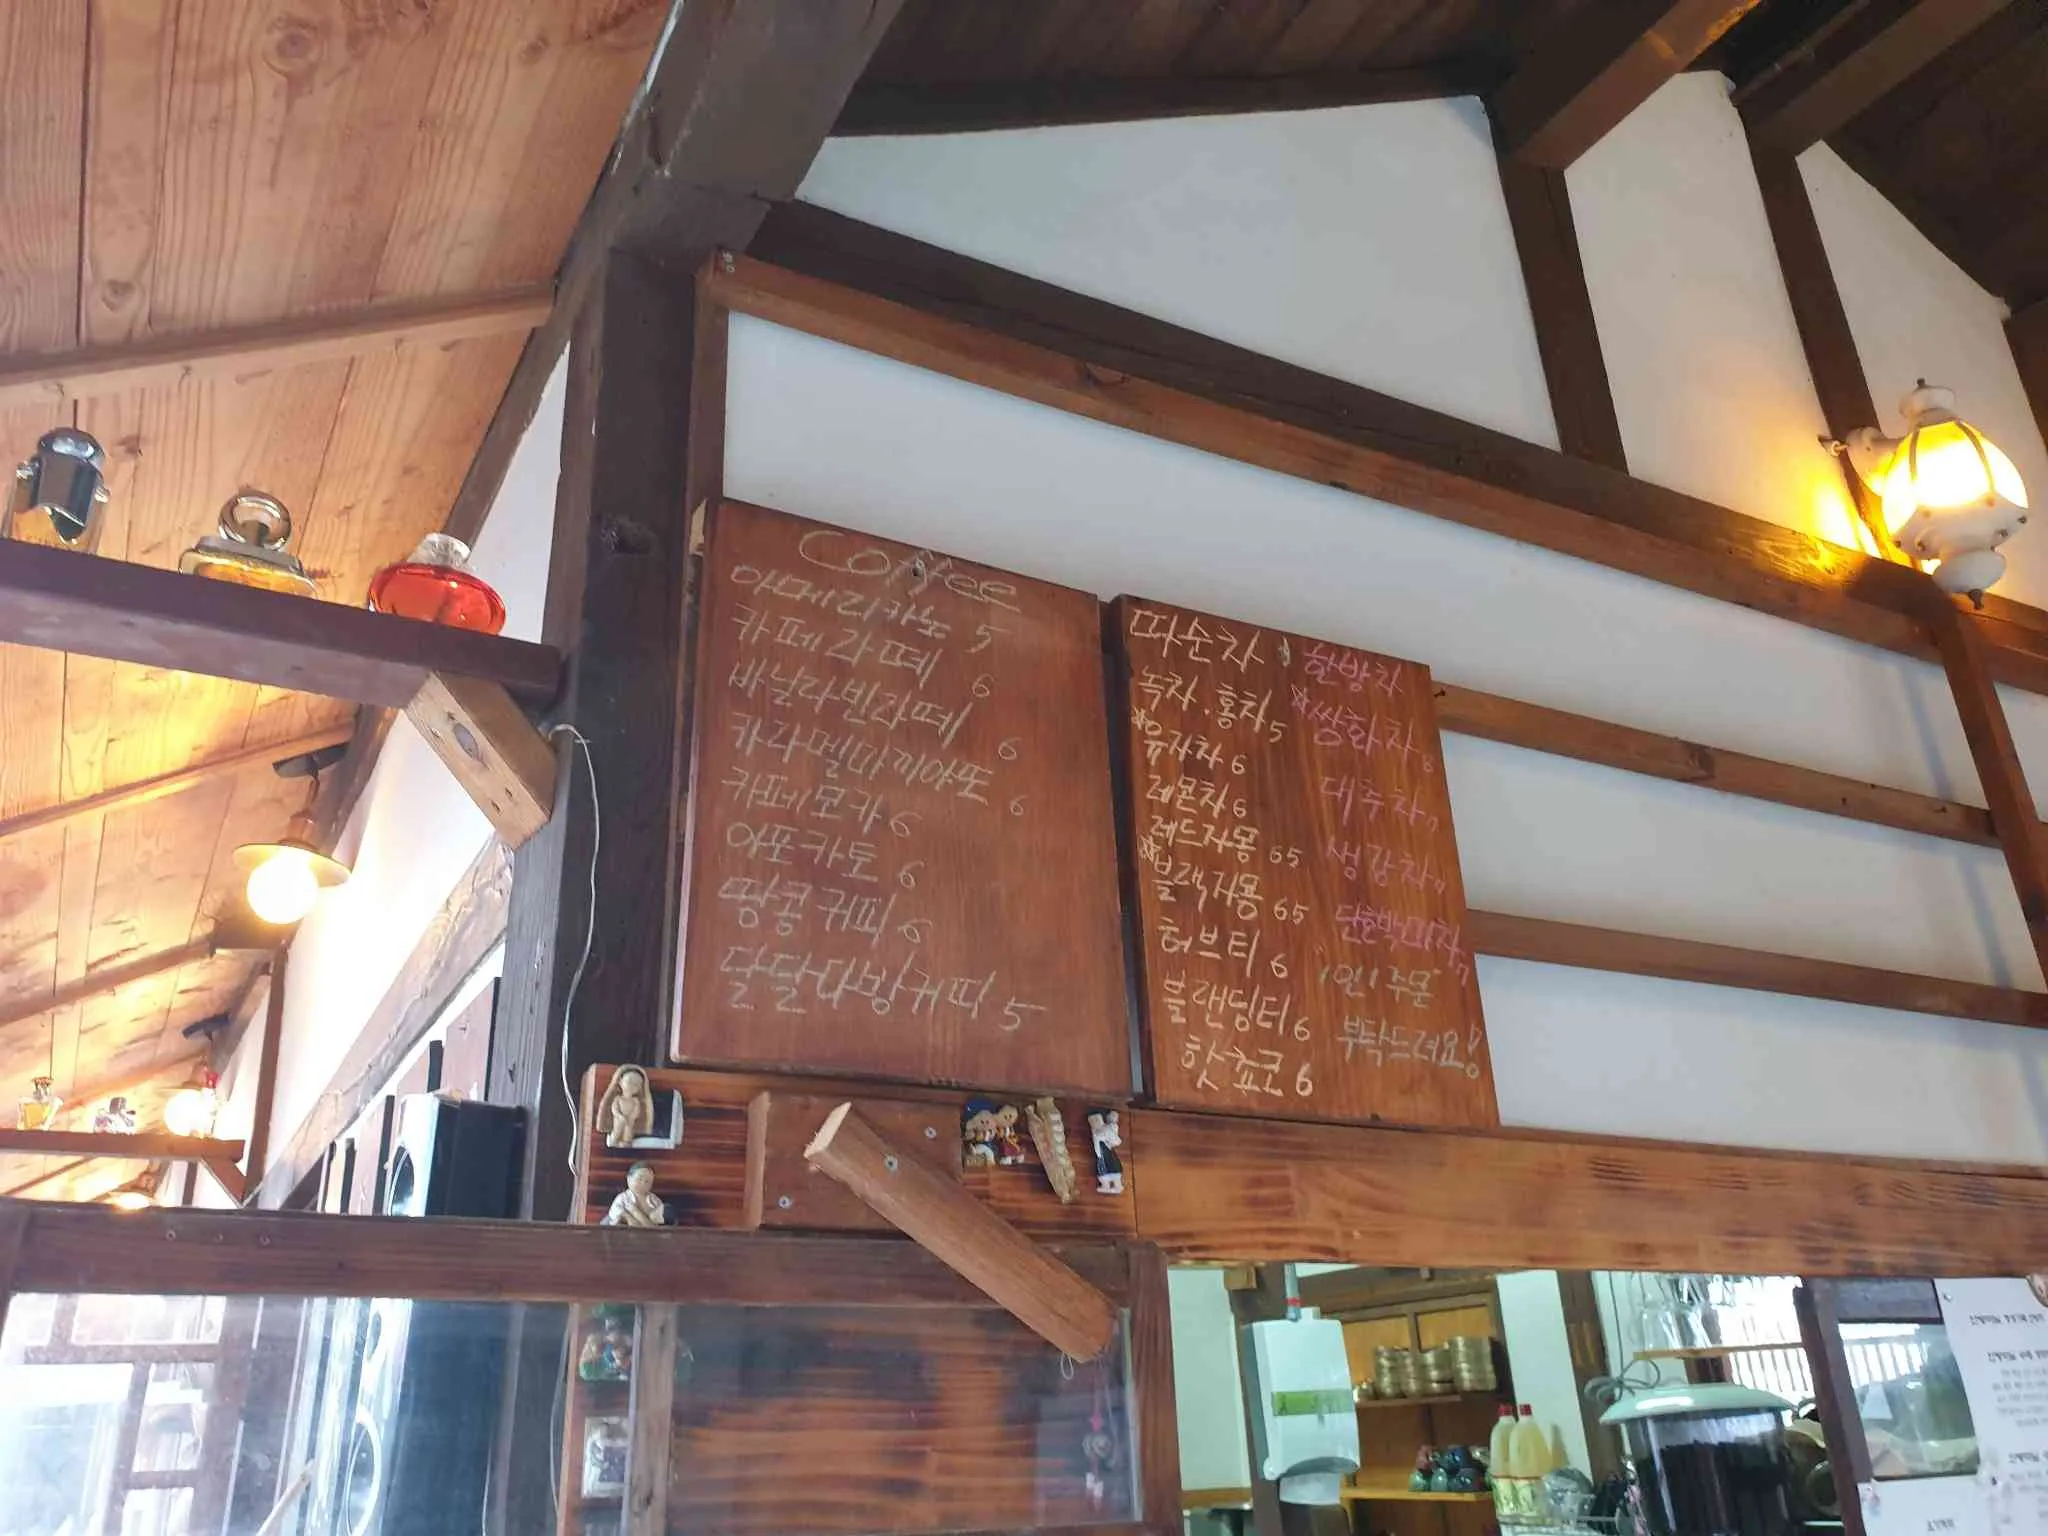 Coffee
아메리카노 5
카페라떼 6
바닐라빈라떼 6
카라멜마끼아또 6
카페모카 6
아포카토 6
땅콩커피 6
달달다방커피 5
따순차
녹차.홍차 5
*유자차 6
레몬차 6
레드자몽 65
*블랙자몽 65
허브티 6
블랜딩티 6
핫쵸코 6
한방차
*쌍화차 8
대추차 7
생강차 7
단호박마차 7
1인1주문
부탁드려요!